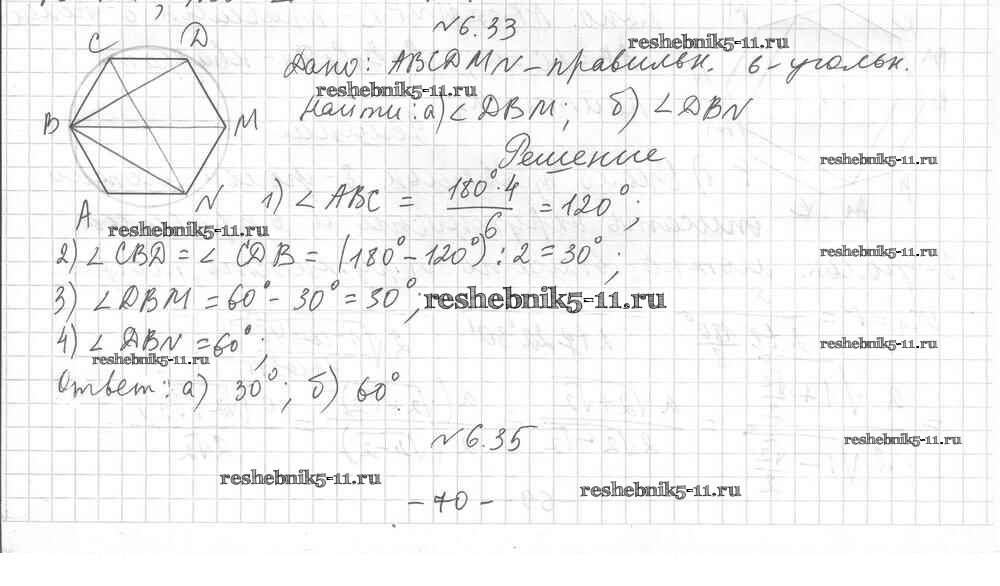 №6.33
reshebnik5-11.ru
C D
Дано: ABCDMN – правильн. 6-угольн.
reshebnik5-11.ru
Найти: а) ∠DBM; б) ∠DBN
B M
Решение
reshebnik5-11.ru
A N
1) ∠ABC = 180°·4 / 6 = 120°;
reshebnik5-11.ru
2) ∠CBD = ∠CDB = (180° – 120°) : 2 = 30°;
reshebnik5-11.ru
3) ∠DBM = 60° – 30° = 30°;
reshebnik5-11.ru
4) ∠DBN = 60°;
reshebnik5-11.ru
reshebnik5-11.ru
Ответ: а) 30°; б) 60°.
№6.35
reshebnik5-11.ru
reshebnik5-11.ru
reshebnik5-11.ru
– 70 –